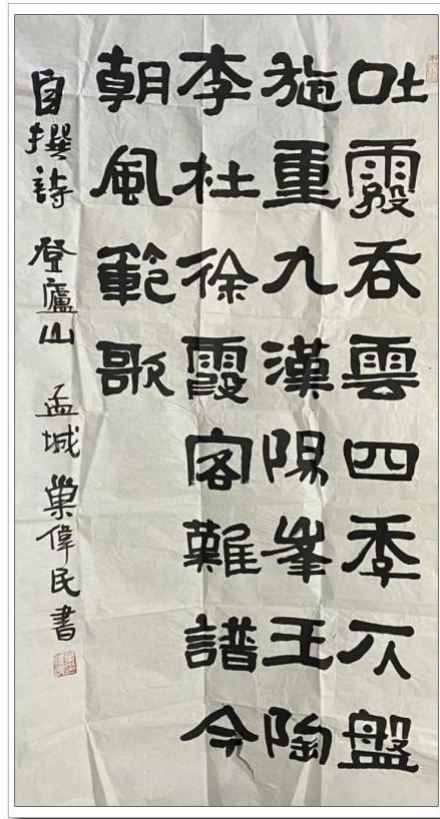 吐吞雲四季盤
施重九漢陽峯王陶
李杜徐霞客難譜今
朝風範歌
自撰詩 登廬山 孟城 巢偉民書